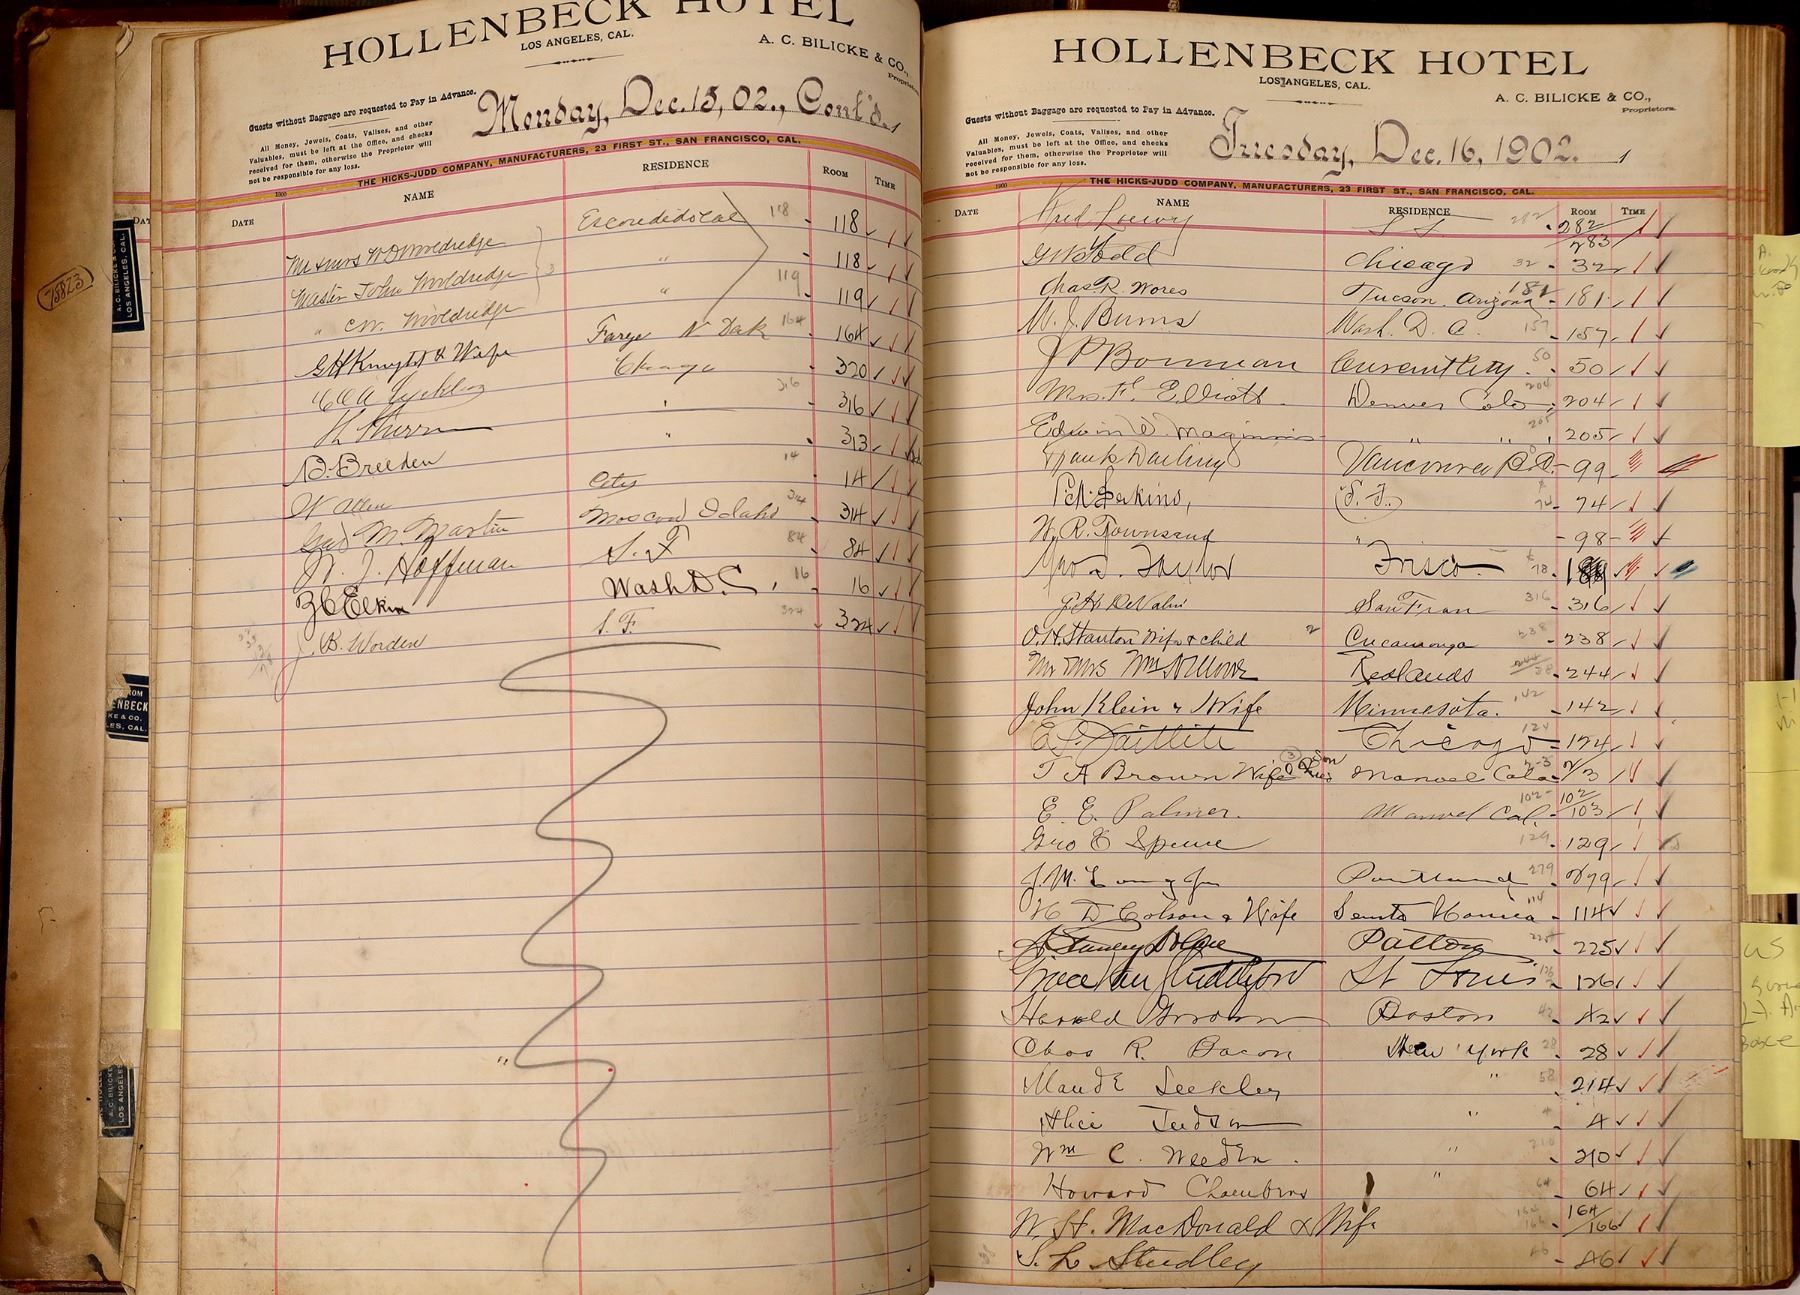 HOLLENBECK HOTEL
LOS ANGELES, CAL.
A. C. BILICKE & CO.,
Proprietors
Guests without Baggage are requested to Pay in Advance.
All Money, Jewels, Coats, Valises, and other
Valuables, must be left at the Office, and checks
received for them, otherwise the Proprietor will
not be responsible for any loss.
Monday, Dec. 15, 02., Cont'd.,
THE HICKS-JUDD COMPANY, MANUFACTURERS, 23 FIRST ST., SAN FRANCISCO, CAL.
1900
DATE NAME RESIDENCE ROOM TIME
Mr & Mrs W D Wooldredge Escondido Cal 118 118
Master John Wooldredge 3 " 118
" C.W. Wooldredge " 119 119
G H Knight & Wife Fargo N Dak 164 164
Chicago 320
316 316
B. Breeden " 313
W Allen City 14 14
Geo M. Martin Moscow Idaho 314 314
W. J. Hoffman S. F 84 84
Z C Elkin Wash D. C, 16 16
J. B. Worden S. F. 324 324
75823
HOLLENBECK HOTEL
LOS ANGELES, CAL.
A. C. BILICKE & CO.,
Proprietors.
Guests without Baggage are requested to Pay in Advance.
All Money, Jewels, Coats, Valises, and other
Valuables, must be left at the Office, and checks
received for them, otherwise the Proprietor will
not be responsible for any loss.
Tuesday, Dec. 16, 1902.
1900
THE HICKS-JUDD COMPANY, MANUFACTURERS, 23 FIRST ST., SAN FRANCISCO, CAL.
DATE NAME RESIDENCE ROOM TIME
Fred Loewy S F 282 282/283
G W Todd Chicago 32 32
Chas R. Wores Tucson, Arizona 181 181
W. J. Burns Wash. D. C. 157 157
J P Bowman 50 50
Mrs. F. Elliott Denver Colo 204 204
Edwin D. Maginnis " " 205 205
Frank Darling Vancouver B.C. 99
Perkins, (S. F.) 74 74
W, R. Townsend " 98
Geo. D. Taylor Frisco 78
J. H. DeValin San Fran 316 316
O. H. Stanton Wife & child 2 Cucamonga 238 238
Mr & Mrs Wm N Moore Redlands 244
John Klein & Wife Minnesota. 142 142
Chicago 124 124
T A Brown Wife & Son Manvel Cala 2-3 2/3
E. E. Palmer. Manvel Cal. 102- 102/103
Geo E Spence 129 129
J. M. Long Jr Portland 279 279
H D Colson & Wife Santa Monica 114 114
Patton 225 225
Grace Van Studdiford St Louis 126 126
Harold Boston 42 42
Chas R. Bacon New York 28 28
Maude Leekley " 58 214
Alice Judson " 4 4
Wm C. Weeden. " 210 210
Howard Chambers " 64 64
W. H. MacDonald & Wife 164 166 164/166
S. L. Studley 46 46